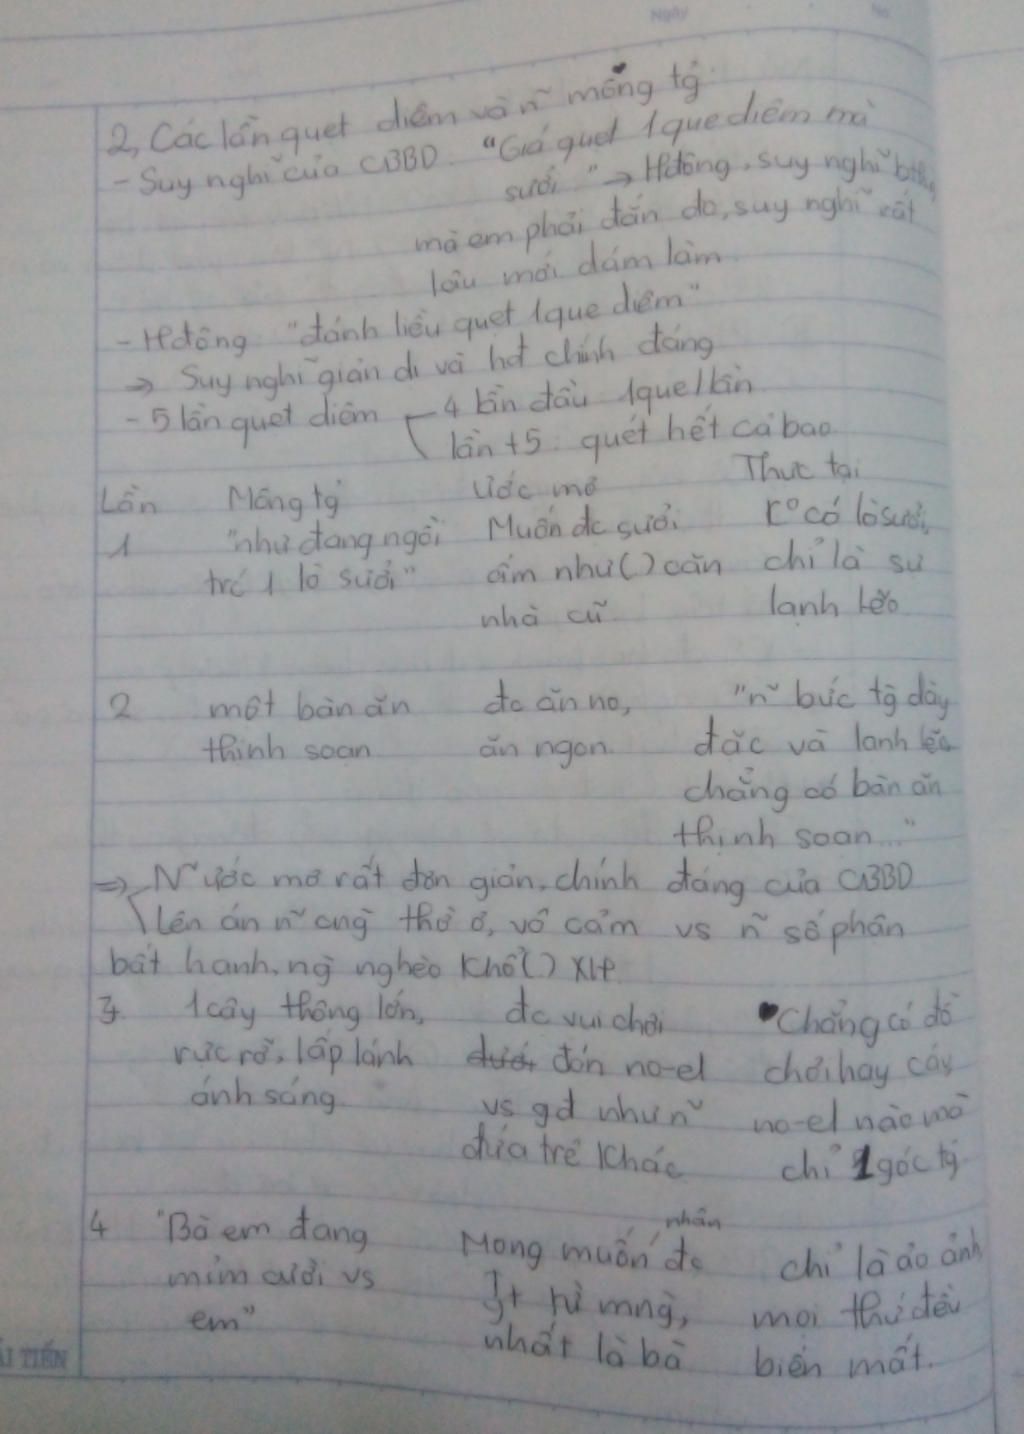 Ngày
No
2, Các lần quẹt diêm và n~ mộng tg̉
- Suy nghĩ của CBBD. "Giá quẹt 1 que diêm mà
sưởi" → Hđộng, suy nghĩ
mà em phải đắn đo, suy nghĩ rất
lâu mới dám làm
- Hđộng "đánh liều quẹt 1 que diêm"
→ Suy nghĩ giản dị và hđ chính đáng
- 5 lần quẹt diêm 4 lần đầu 1 que/lần
lần t5: quét hết cả bao
Lần Mộng tg̉ Ước mơ Thực tại
1 "như đang ngồi Muốn đc sưởi K° có lò sưởi,
trc 1 lò sưởi" ấm như ( ) căn chỉ là sự
nhà cũ. lạnh lẽo
2 một bàn ăn đc ăn no, "n~ bức tg̀ dày
thịnh soạn ăn ngon. đặc và lạnh lẽo
chẳng có bàn ăn
thịnh soạn..."
⇒ N~ ước mơ rất đơn giản, chính đáng của CBBD
Lên án n~ ông thờ ơ, vô cảm vs n~ số phận
bất hạnh, ng̀ nghèo khổ ( ) XHP
3 1 cây thông lớn, đc vui chơi Chẳng có đồ
rực rỡ, lấp lánh đón no-el chơi hay cây
ánh sáng. vs gđ như n~ no-el nào mà
đứa trẻ khác chỉ 1 góc tg̀
4 "Bà em đang Mong muốn đc nhận chỉ là ảo ảnh
mỉm cười vs ty từ mng̀, mọi thứ đều
em" nhất là bà biến mất.
ẢI TIẾN